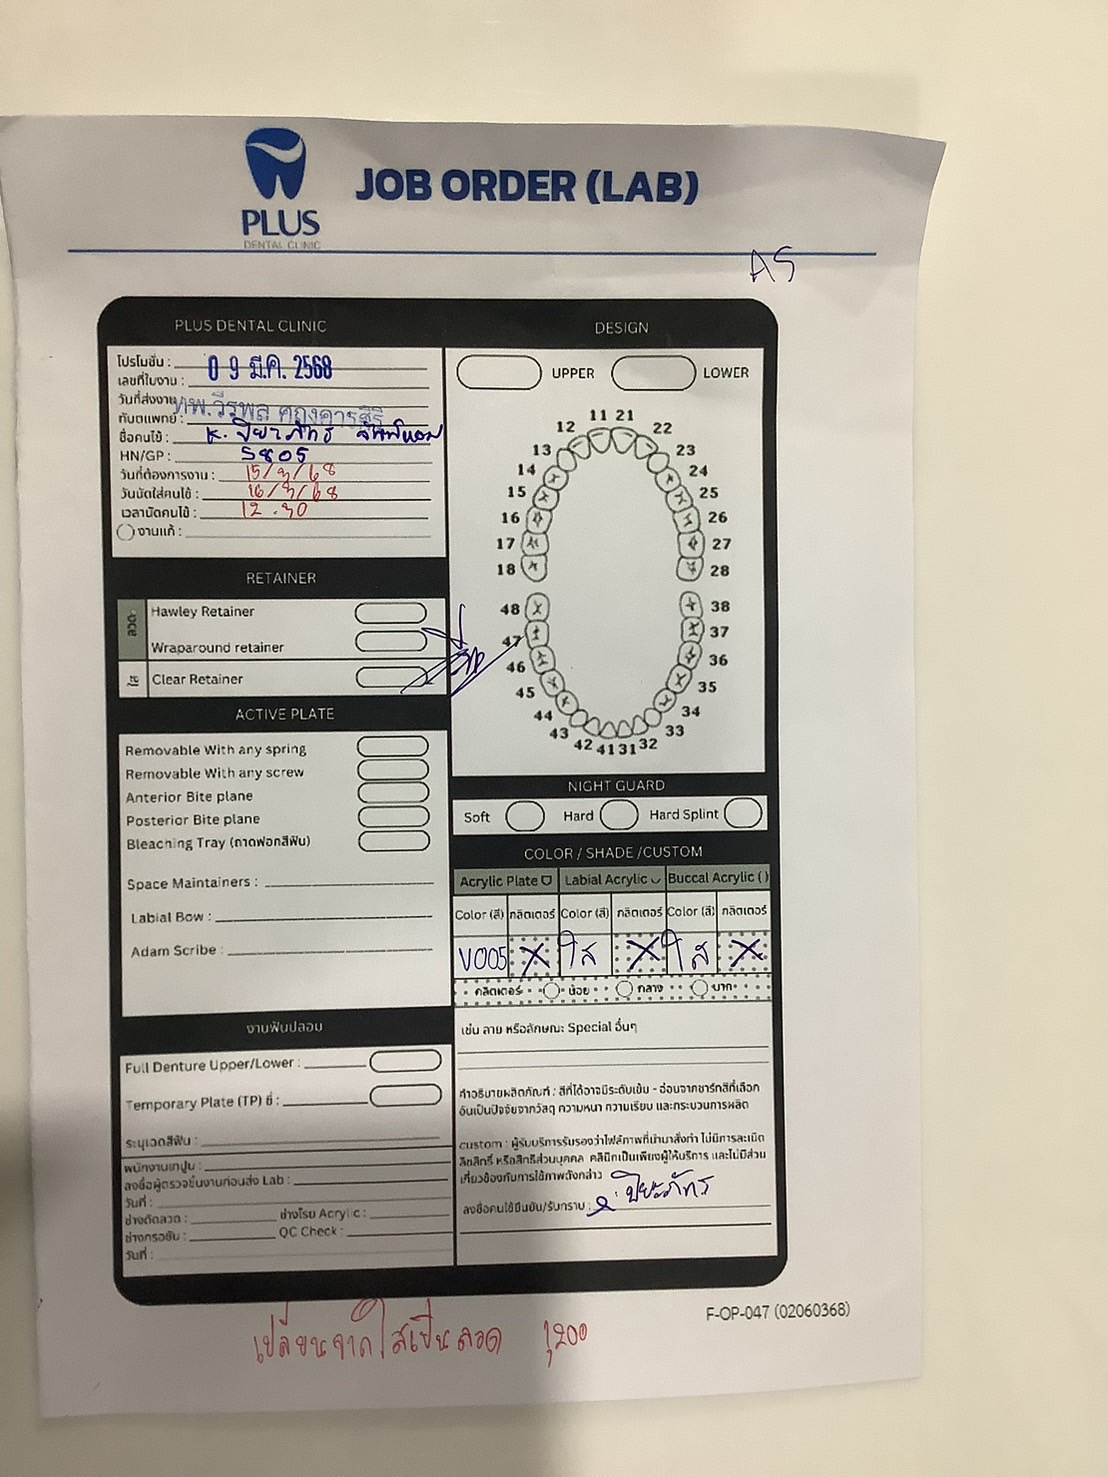 PLUS
DENTAL CLINIC
JOB ORDER (LAB)
A5
PLUS DENTAL CLINIC
โปรโมชั่น :
เลขที่ใบงาน : 09 มี.ค. 2568
วันที่ส่งงาน
ทันตแพทย์ : ทพ.วีรพล
ชื่อคนไข้ : ปิยะภัทร
HN/GP : 5805
วันที่ต้องการงาน : 15/3/68
วันนัดใส่คนไข้ : 16/3/68
เวลานัดคนไข้ : 12.30
งานแก้ :
RETAINER
ลวด
Hawley Retainer
Wraparound retainer
ใส
Clear Retainer
ACTIVE PLATE
Removable With any spring
Removable With any screw
Anterior Bite plane
Posterior Bite plane
Bleaching Tray (ถาดฟอกสีฟัน)
Space Maintainers :
Labial Bow :
Adam Scribe :
งานฟันปลอม
Full Denture Upper/Lower :
Temporary Plate (TP) ซี่ :
ระบุเฉดสีฟัน :
พนักงานเทปูน :
ลงชื่อผู้ตรวจชิ้นงานก่อนส่ง Lab :
วันที่ :
ช่างดัดลวด : ช่างโรย Acrylic :
ช่างกรอขัด : QC Check :
วันที่ :
DESIGN
UPPER LOWER
11 21
12 22
13 23
14 24
15 25
16 26
17 27
18 28
48 38
47 37
46 36
45 35
44 34
43 33
42 41 31 32
NIGHT GUARD
Soft Hard Hard Splint
COLOR / SHADE /CUSTOM
Acrylic Plate Labial Acrylic Buccal Acrylic ( )
Color (สี) กลิตเตอร์ Color (สี) กลิตเตอร์ Color (สี) กลิตเตอร์
V005 X ใส X ใส X
กลิตเตอร์ น้อย กลาง มาก
เช่น ลาย หรือลักษณะ Special อื่นๆ
คำอธิบายผลิตภัณฑ์ : สีที่ได้อาจมีระดับเข้ม - อ่อนจากชาร์ทสีที่เลือก
อันเป็นปัจจัยจากวัสดุ ความหนา ความเรียบ และกระบวนการผลิต
custom : ผู้รับบริการรับรองว่าไฟล์ภาพที่นำมาสั่งทำ ไม่มีการละเมิด
ลิขสิทธิ์ หรือสิทธิส่วนบุคคล คลินิกเป็นเพียงผู้ให้บริการ และไม่มีส่วน
เกี่ยวข้องกับการใช้ภาพดังกล่าว
ลงชื่อคนไข้ยืนยัน/รับทราบ : ปิยะภัทร
F-OP-047 (02060368)
เปลี่ยนจากใสเป็นลวด 1,200